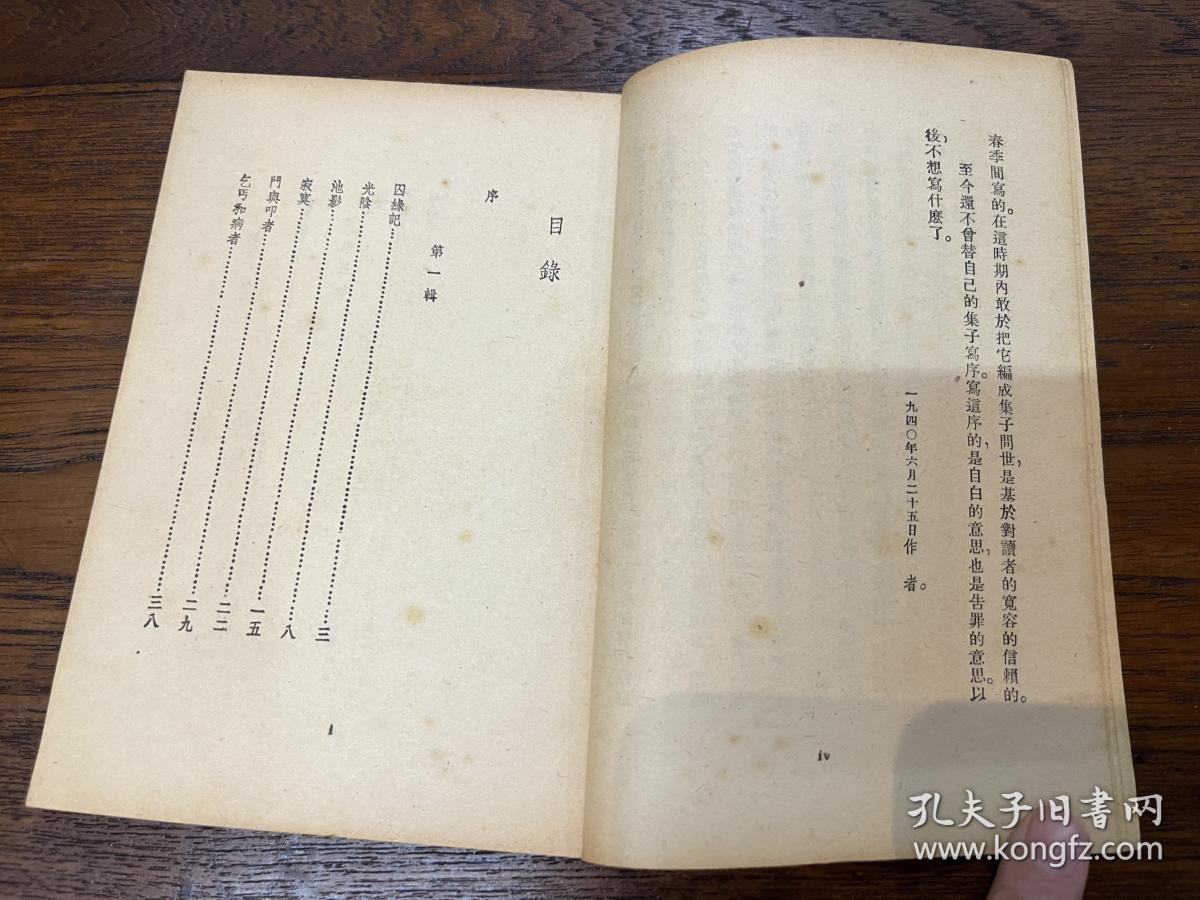 春季間寫的。在這時期內敢於把它編成集子問世，是基於對讀者的寬容的信賴的。
至今還不曾替自己的集子寫序。寫這序的，是自白的意思，也是告罪的意思。以
後，不想寫什麼了。
一九四〇年六月二十五日作 者。
iv
目錄
序
第一輯
囚綠記……三
光陰……八
池影……一五
寂寞……二二
門與叩者……二九
乞丐和病者……三八
I
孔夫子旧书网
www.kongfz.com